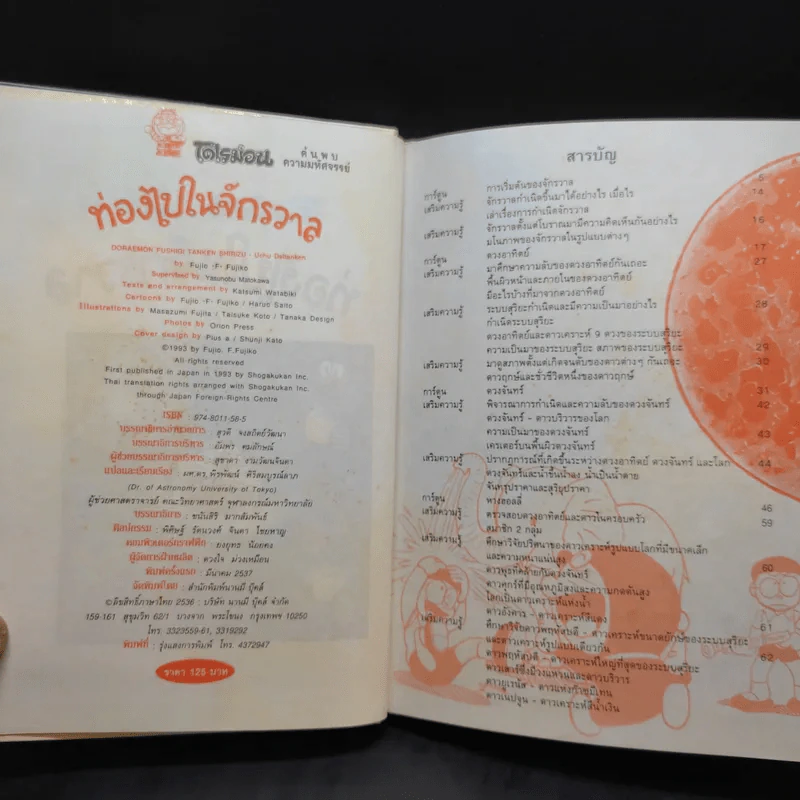 โดเรม่อน
ค้นพบ
ความมหัศจรรย์
ท่องไปในจักรวาล
DORAEMON FUSHIGI TANKEN SHIRIZU - Uchu Daitanken
by Fujio ·F· Fujiko
Supervised by Yasunobu Matokawa
Texts and arrangement by Katsumi Watabiki
Cartoons by Fujio ·F· Fujiko / Haruo Saito
Illustrations by Masazumi Fujita / Taisuke Koto / Tanaka Design
Photos by Orion Press
Cover design by Plus a / Shunji Kato
©1993 by Fujio. F.Fujiko
All rights reserved
First published in Japan in 1993 by Shogakukan Inc.
Thai translation rights arranged with Shogakukan Inc.
through Japan Foreign-Rights Centre
ISBN : 974-8011-56-5
บรรณาธิการอำนวยการ : สุวดี จงสถิตย์วัฒนา
บรรณาธิการบริหาร : อัมพร คมลักษณ์
ผู้ช่วยบรรณาธิการบริหาร : สุชาดา งามวัฒนจินดา
แปลและเรียบเรียง : ผศ.ดร.พิรพัฒน์ ศิริสมบูรณ์ลาภ
(Dr. of Astronomy University of Tokyo)
ผู้ช่วยศาสตราจารย์ คณะวิทยาศาสตร์ จุฬาลงกรณ์มหาวิทยาลัย
บรรณาธิการ : ชนันสิริ มากสัมพันธ์
ศิลปกรรม : พิศิษฐ์ รัตนวงศ์ จินดา ไชยหาญ
คอมพิวเตอร์กราฟฟิก : ยงยุทธ น้อยคง
ผู้จัดการฝ่ายผลิต : ดวงใจ ม่วงเหมือน
พิมพ์ครั้งแรก : มีนาคม 2537
จัดพิมพ์โดย : สำนักพิมพ์นานมี บุ๊คส์
©ลิขสิทธิ์ภาษาไทย 2536 : บริษัท นานมี บุ๊คส์ จำกัด
159-161 สุขุมวิท 62/1 บางจาก พระโขนง กรุงเทพฯ 10250
โทร 3323559-61, 3319292
พิมพ์ที่ : รุ่งแสงการพิมพ์ โทร. 4372947
ราคา 125 บาท
สารบัญ
การ์ตูน การเริ่มต้นของจักรวาล 5
เสริมความรู้ จักรวาลกำเนิดขึ้นมาได้อย่างไร เมื่อไร 14
เล่าเรื่องการกำเนิดจักรวาล
เสริมความรู้ จักรวาลตั้งแต่โบราณมามีความคิดเห็นกันอย่างไร 16
มโนภาพของจักรวาลในรูปแบบต่างๆ
การ์ตูน ดวงอาทิตย์ 17
เสริมความรู้ มาศึกษาความลับของดวงอาทิตย์กันเถอะ 27
พื้นผิวหน้าและภายในของดวงอาทิตย์
มีอะไรบ้างที่มาจากดวงอาทิตย์
เสริมความรู้ ระบบสุริยะกำเนิดและมีความเป็นมาอย่างไร 28
กำเนิดระบบสุริยะ
ดวงอาทิตย์และดาวเคราะห์ 9 ดวงของระบบสุริยะ
ความเป็นมาของระบบสุริยะ สภาพของระบบสุริยะ 29
เสริมความรู้ มาดูสภาพตั้งแต่เกิดจนดับของดาวต่างๆ กันเถอะ 30
ดาวฤกษ์และชั่วชีวิตหนึ่งของดาวฤกษ์
การ์ตูน ดวงจันทร์ 31
เสริมความรู้ พิจารณาการกำเนิดและความลับของดวงจันทร์ 42
ดวงจันทร์ - ดาวบริวารของโลก
ความเป็นมาของดวงจันทร์ 43
เครเตอร์บนพื้นผิวดวงจันทร์
เสริมความรู้ ปรากฏการณ์ที่เกิดขึ้นระหว่างดวงอาทิตย์ ดวงจันทร์ และโลก 44
ดวงจันทร์และน้ำขึ้นน้ำลง น้ำเป็นน้ำตาย
จันทรุปราคาและสุริยุปราคา
การ์ตูน หางฮอลลี่ 46
เสริมความรู้ ตรวจสอบดวงอาทิตย์และดาวในครอบครัว 59
สมาชิก 2 กลุ่ม
เสริมความรู้ ศึกษาวิจัยปริศนาของดาวเคราะห์รูปแบบโลกที่มีขนาดเล็ก 60
และความหนาแน่นสูง
ดาวพุธที่คล้ายกับดวงจันทร์
ดาวศุกร์ที่มีอุณหภูมิสูงและความกดดันสูง
โลกเป็นดาวเคราะห์แห่งน้ำ
ดาวอังคาร - ดาวเคราะห์สีแดง 61
เสริมความรู้ ศึกษาวิจัยดาวพฤหัสบดี - ดาวเคราะห์ขนาดยักษ์ของระบบสุริยะ
และดาวเคราะห์รูปแบบเดียวกัน 62
ดาวพฤหัสบดี - ดาวเคราะห์ใหญ่ที่สุดของระบบสุริยะ
ดาวเสาร์ซึ่งมีวงแหวนและดาวบริวาร
ดาวยูเรนัส - ดาวแห่งก๊าซมีเทน
ดาวเนปจูน - ดาวเคราะห์สีน้ำเงิน